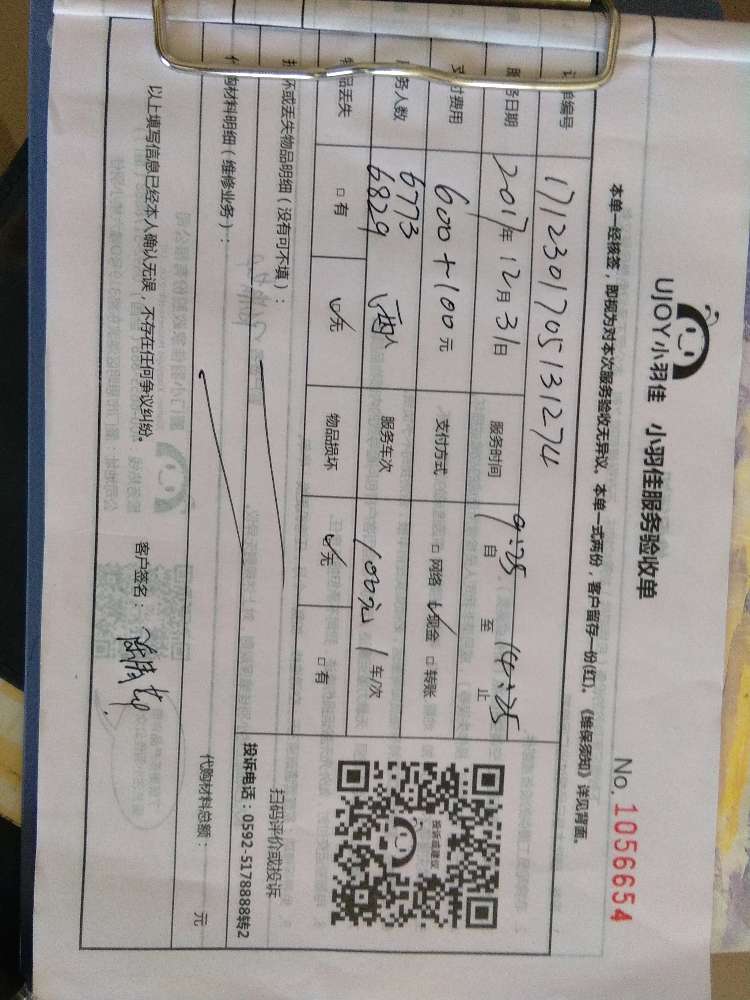 UJOY小羽佳 小羽佳服务验收单
No. 1056654
本单一经核签，即视为对本次服务验收无异议。本单一式两份，客户留存一份(红)。《维保须知》详见背面。
编号 1712301705131274
日期 2017年12月31日 服务时间 自 至 14:25 止
费用 600+100元 支付方式 □网络 ☑现金 □转账
务人数 6773 6829 两人 服务车次 100元 1车/次
品丢失 □有 ☑无 物品损坏 ☑无 □有
坏或丢失物品明细（没有可不填）：
扫码评价或投诉
投诉电话：0592-5178888转2
投诉或建议
购材料明细（维修业务）：
代购材料总额： 元
以上填写信息已经本人确认无误，不存在任何争议纠纷。 客户签名：